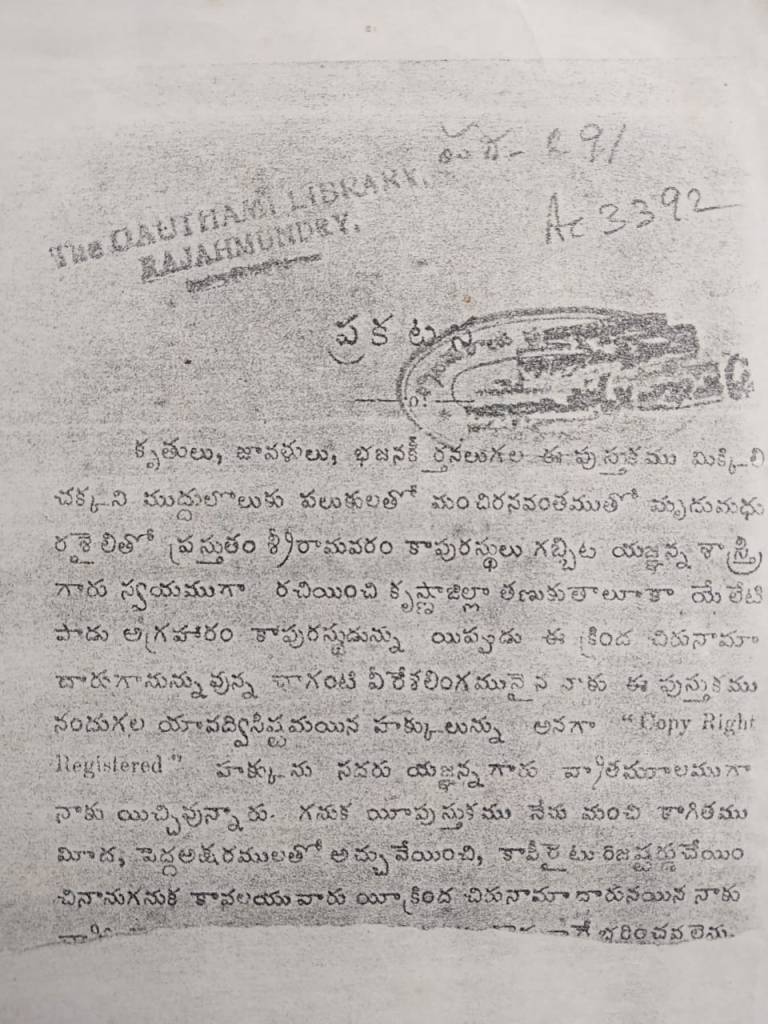 The GAUTHAMI LIBRARY,
RAJAHMUNDRY.
291
Ac 3392
ప్రకటన
కృతులు, జావళులు, భజనకీర్తనలుగల ఈ పుస్తకము మిక్కిలి
చక్కని ముద్దులొలుకు పలుకులతో మంచిరసవంతముతో మృదుమధు
రశైలితో ప్రస్తుతం శ్రీరామవరం కాపురస్థులు గబ్బిట యజ్ఞన్న శాస్త్రి
గారు స్వయముగా రచియించి కృష్ణాజిల్లా తణుకుతాలూకా యేలేటి
పాడు అగ్రహారం కాపురస్థుడున్ను యిప్పుడు ఈ క్రింద చిరునామా
దారుగానున్నువున్న చాగంటి వీరేశలింగమునైన నాకు ఈ పుస్తకము
నందుగల యావద్విసిష్టమయిన హక్కులున్ను అనగా "Copy Right
Registered" హక్కును సదరు యజ్ఞన్నగారు వ్రాతమూలముగా
నాకు యిచ్చివున్నారు. గనుక యీపుస్తకము నేను మంచి కాగితము
మీద, పెద్దఅక్షరములతో అచ్చువేయించి, కాపీరైటు రిజష్టర్డుచేయిం
చినానుగనుక కావలయువారు యీక్రింద చిరునామా దారునయిన నాకు
భరించవలెను.